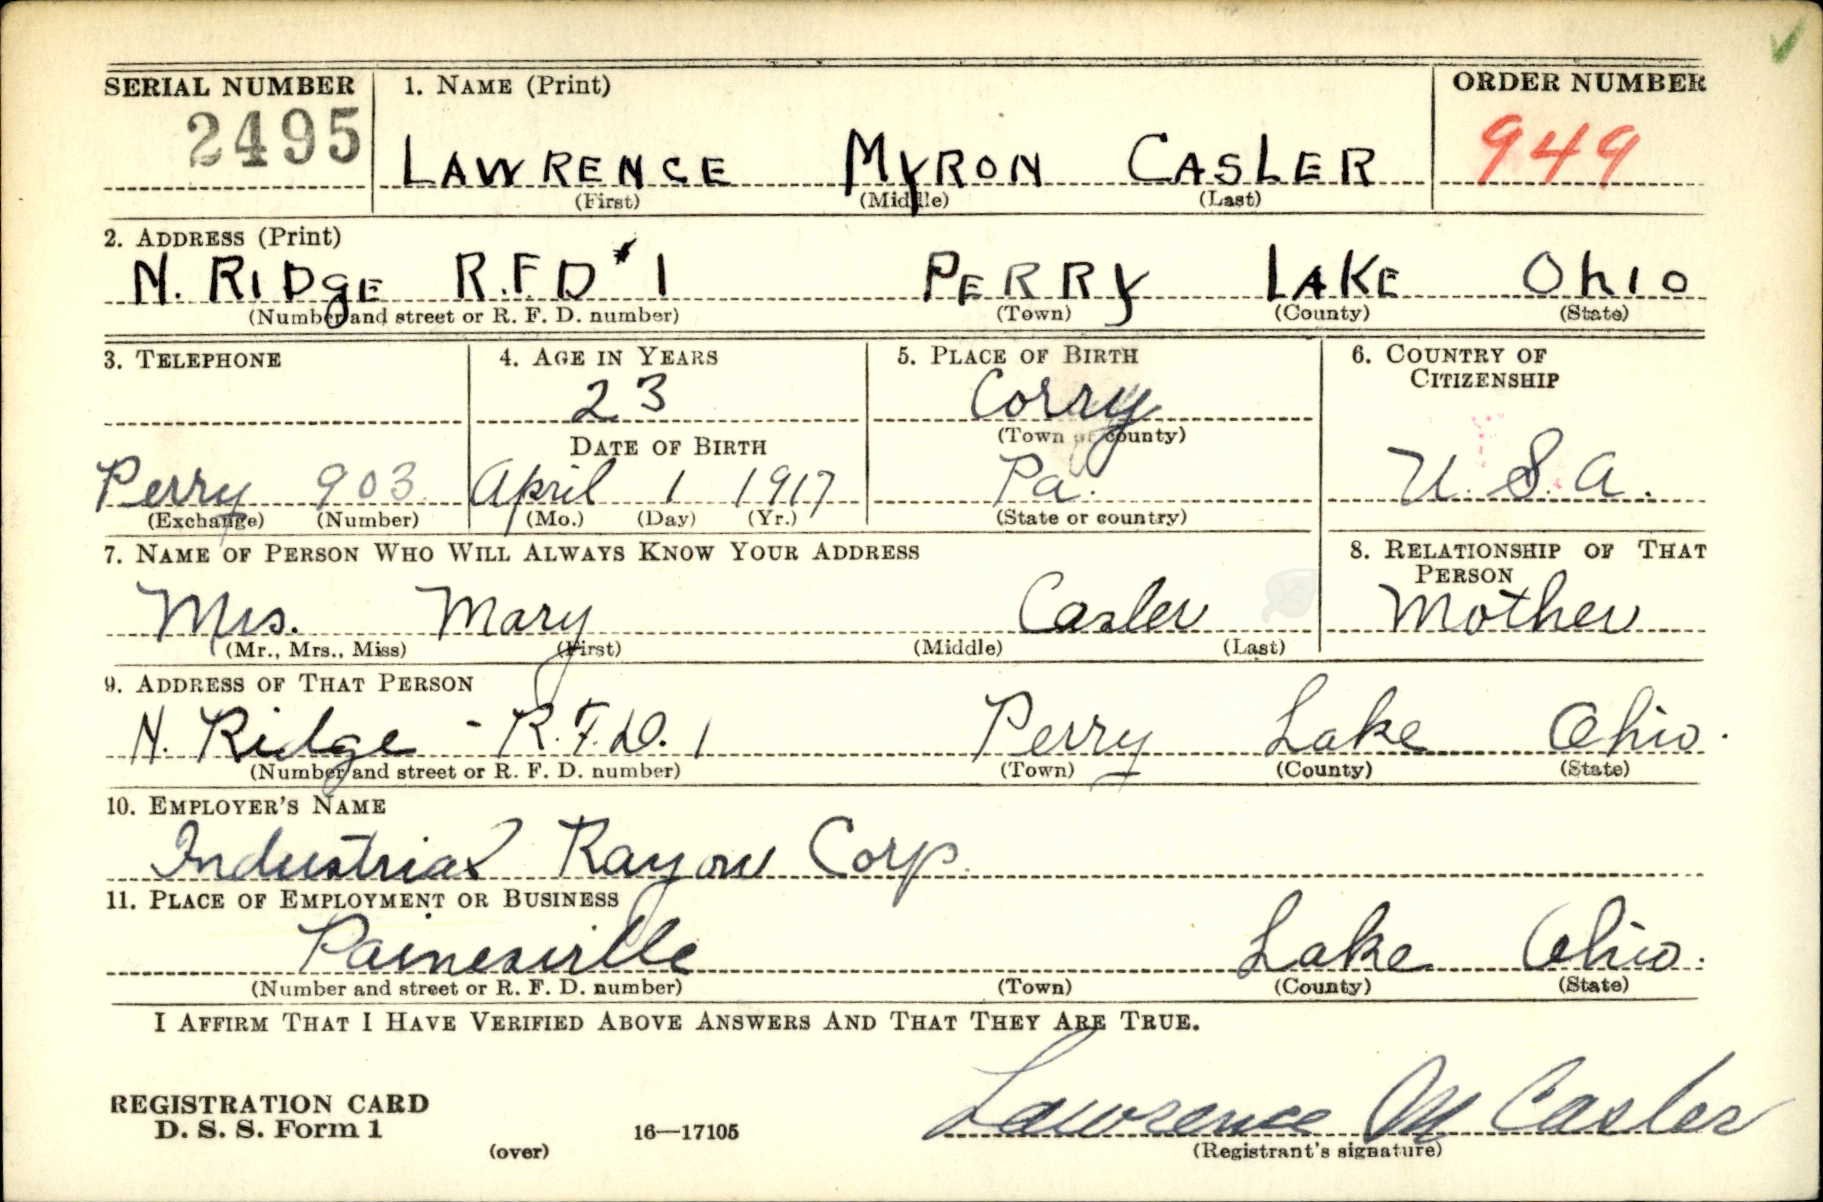 SERIAL NUMBER 1. NAME (Print) ORDER NUMBER
2495 LAWRENCE MYRON CASLER 949
(First) (Middle) (Last)
2. ADDRESS (Print)
N. RIDgE R.F.D #1 PERRy LAKE OhIO
(Number and street or R. F. D. number) (Town) (County) (State)
3. TELEPHONE 4. AGE IN YEARS 5. PLACE OF BIRTH 6. COUNTRY OF CITIZENSHIP
23 Corry
(Town or county)
DATE OF BIRTH
Perry 903 April 1 1917 Pa. U. S. A.
(Exchange) (Number) (Mo.) (Day) (Yr.) (State or country)
7. NAME OF PERSON WHO WILL ALWAYS KNOW YOUR ADDRESS 8. RELATIONSHIP OF THAT PERSON
Mrs. Mary Casler Mother
(Mr., Mrs., Miss) (First) (Middle) (Last)
9. ADDRESS OF THAT PERSON
N. Ridge - R.F.D. 1 Perry Lake Ohio.
(Number and street or R. F. D. number) (Town) (County) (State)
10. EMPLOYER'S NAME
Industrial Rayon Corp.
11. PLACE OF EMPLOYMENT OR BUSINESS
Painesville Lake Ohio.
(Number and street or R. F. D. number) (Town) (County) (State)
I AFFIRM THAT I HAVE VERIFIED ABOVE ANSWERS AND THAT THEY ARE TRUE.
REGISTRATION CARD
D. S. S. Form 1 16—17105 Lawrence M Casler
(over) (Registrant's signature)